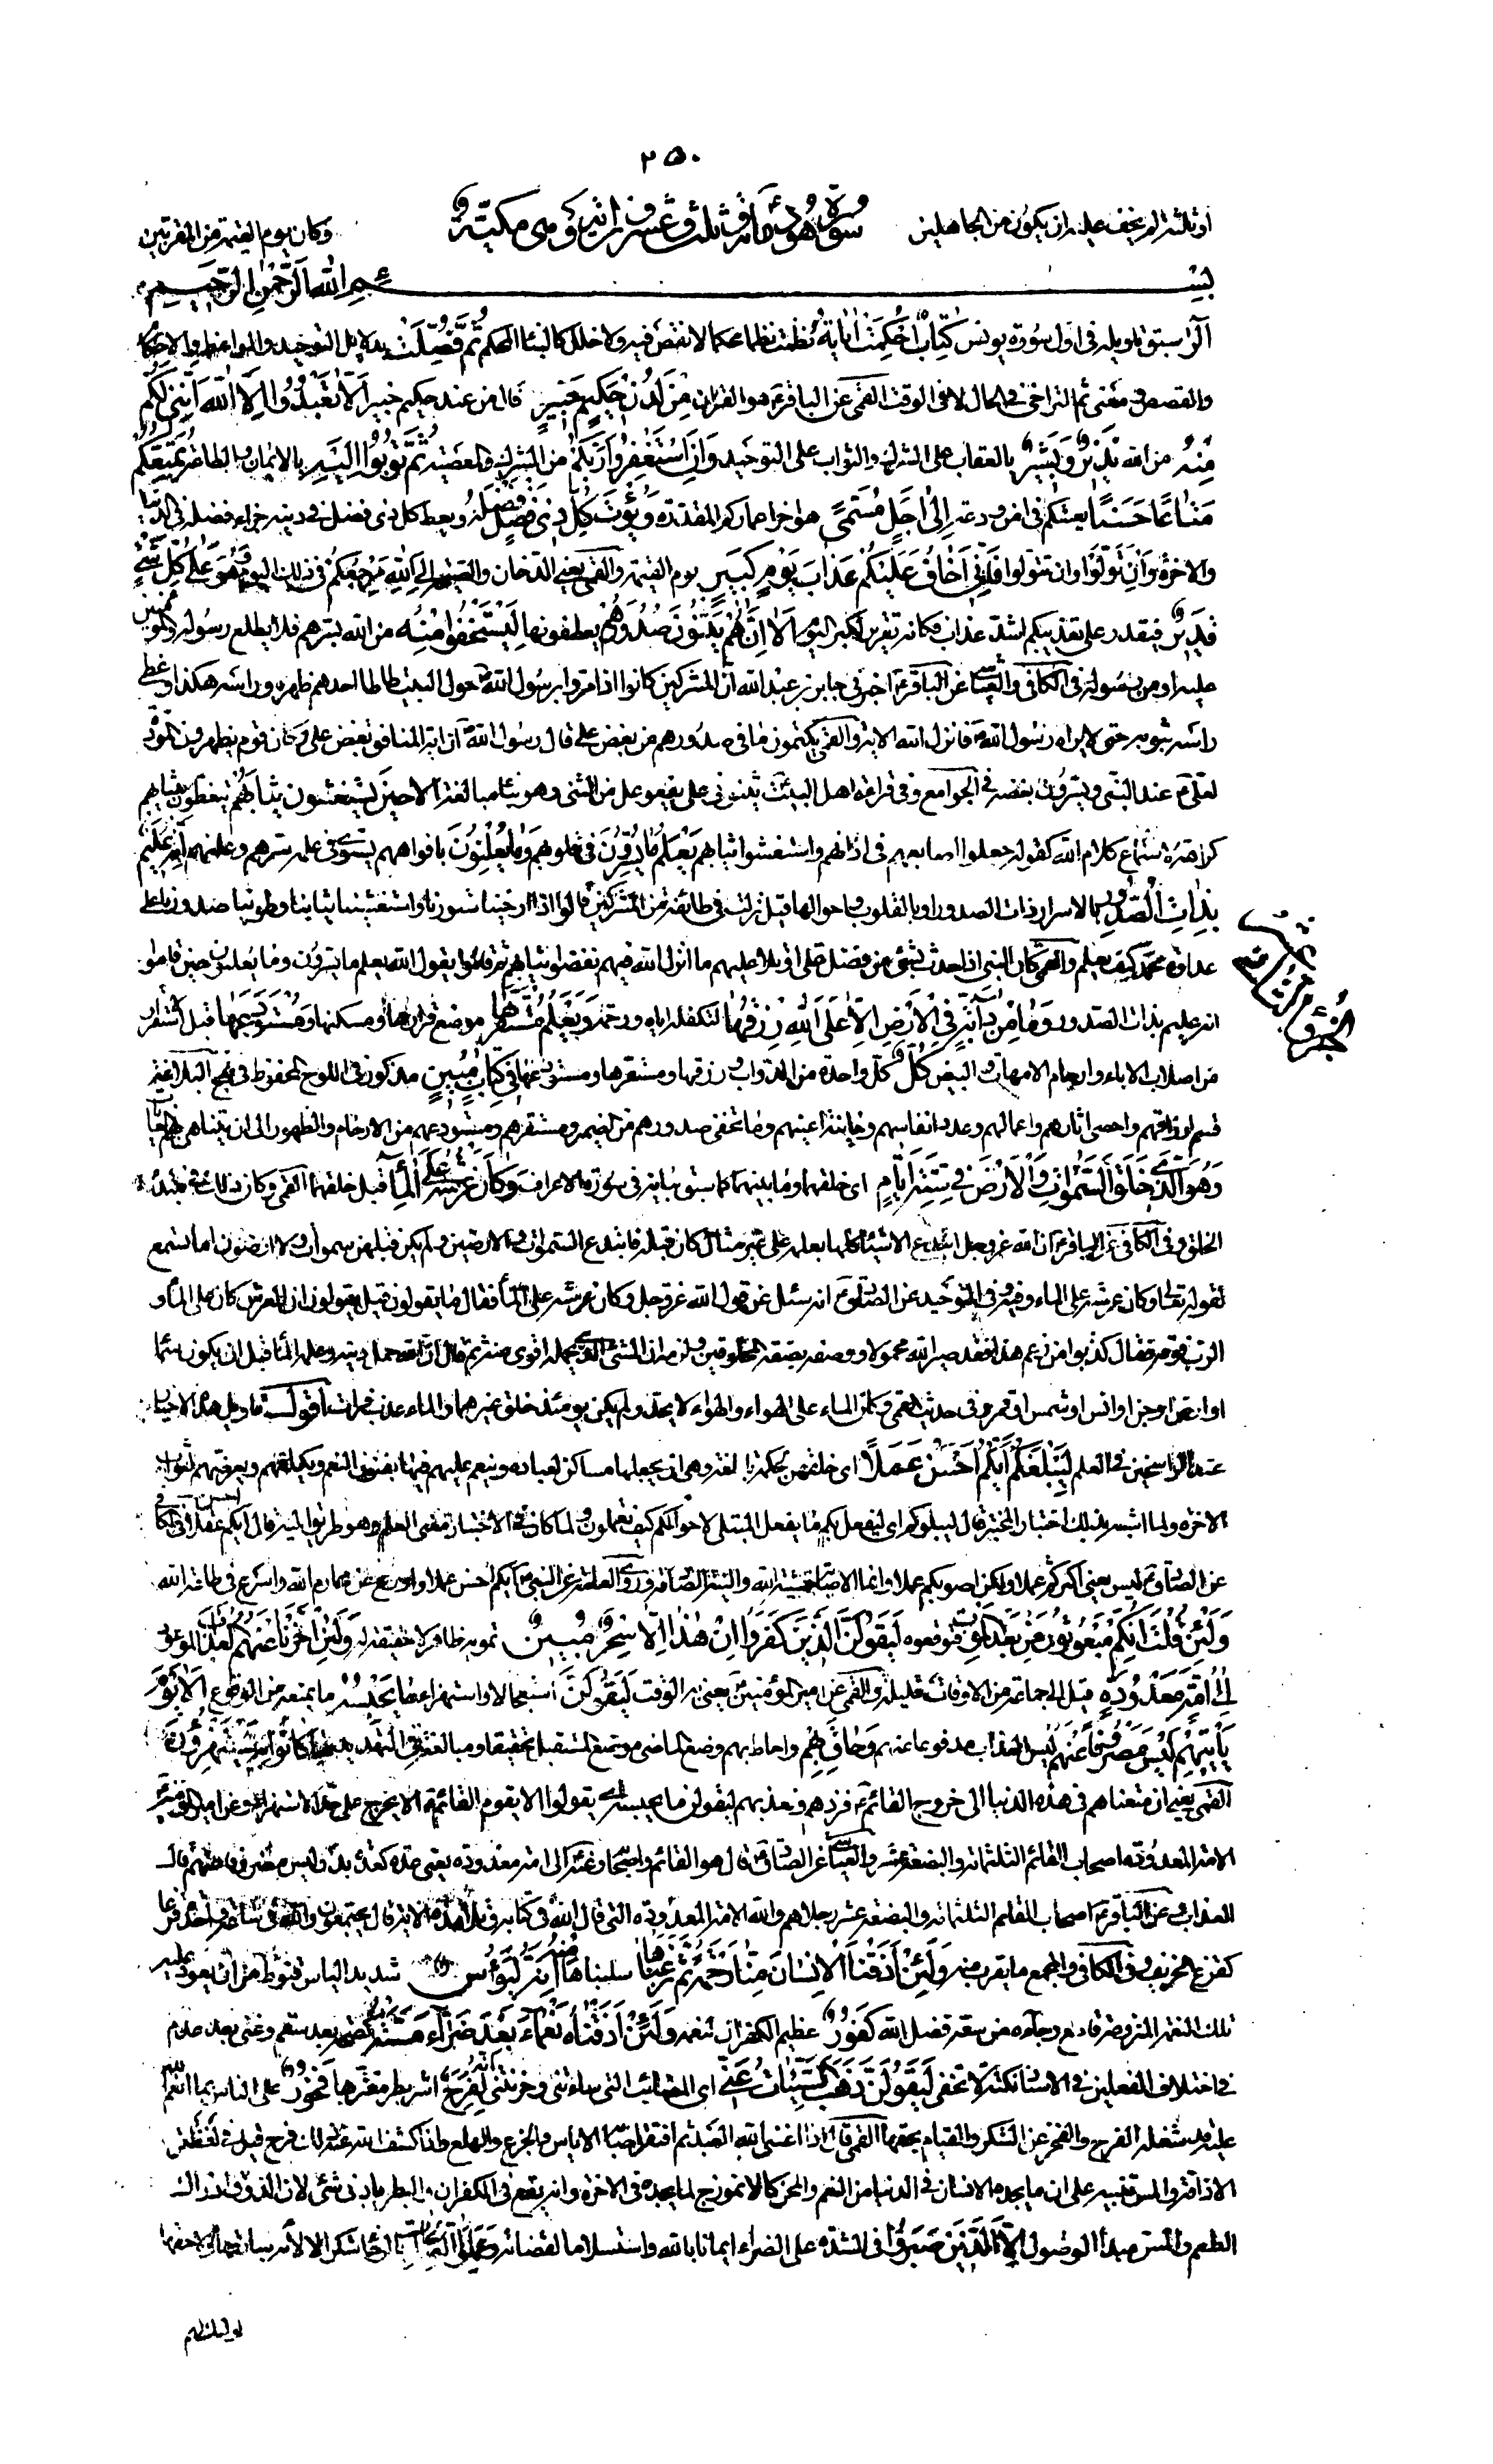 ٢٥٠
او ثلثة لم يخف عليه ان يكون من الجاهلين وكان يوم القيمة من المقربين
سورة هود مائة وثلث وعشرون اية وهى مكية
بسم الله الرحمن الرحيم
الر سبق تاويله فى اول سورة يونس كتاب احكمت اياته نظمت نظما محكما لا نقض فيه ولا خلل كالبناء المحكم ثم فصلت بدلايل التوحيد والمواعظ والاحكام
والقصص معنى ثم التراخى فى الحال لا فى الوقت القمى عن الباقرع هو القران من لدن حكيم خبير قال من عند حكيم خبير الا تعبدوا الا الله اننى لكم
منه من الله نذير وبشير بالعقاب على الشرك والثواب على التوحيد وان استغفروا ربكم من الشرك والمعصية ثم توبوا اليه بالايمان والطاعة يمتعكم
متاعا حسنا يعيشكم فى امن ودعة الى اجل مسمى هو اخر اعماركم المقدرة ويؤت كل ذى فضل فضله ويعط كل ذى فضل فى دينه جزاء فضله فى الدنيا
والاخرة وان تولوا وان تتولوا فانى اخاف عليكم عذاب يوم كبير يوم القيمة والقمى يعنى الدخان والصيحة الى الله مرجعكم فى ذلك اليوم وهو على كل شئ
قدير فيقدر على تعذيبكم اشد عذاب فكانه تقرير لكبر اليوم الا انهم يثنون صدورهم يعطفونها ليستخفوا منه من الله بسرهم فلا يطلع رسوله والمؤمنين
عليه او من رسوله فى الكافى والعياشى عن الباقرع اخبرنى جابر بن عبد الله ان المشركين كانوا اذا مروا برسول الله حول البيت طاطا احدهم ظهره وراسه هكذا وغطى
راسه بثوبه حتى لا يراه رسول الله فانزل الله الاية والقمى يكتمون ما فى صدورهم من بغض على قال رسول الله ان اية المنافق بغض على وكان قوم يظهرون المودة
لعلى ع عند النبى ويسرون بغضه فى الجوامع وفى قراءة اهل البيت يثنونى على يفعوعل من الثنى وهو بناء مبالغة الا حين يستغشون ثيابهم يتغطون بثيابهم
كراهة استماع كلام الله كقوله جعلوا اصابعهم فى اذانهم واستغشوا ثيابهم يعلم ما يسرون فى قلوبهم وما يعلنون بافواههم يستوى فى علمه سرهم وعلنهم انه عليم
بذات الصدور بالاسرار ذات الصدور او بالقلوب واحوالها قيل نزلت فى طائفة من المشركين قالوا اذا ارخينا ستورنا واستغشينا ثيابنا وطوينا صدورنا على
عداوة محمد كيف يعلم والقمى كان النبى اذا حدث بشئ من فضل على او تلا عليهم ما انزل الله فيه نفضوا ثيابهم ثم قاموا يقول الله يعلم ما يسرون وما يعلنون حين قاموا
انه عليم بذات الصدور وما من دابة فى الارض الا على الله رزقها لتكفله اياه ورحمة ويعلم مستقرها موضع قرارها ومسكنها ومستودعها قبل استقرار
من اصلاب الاباء وارحام الامهات والبيض كل كل واحدة من الدواب ورزقها ومستقرها ومستودعها فى كتاب مبين مذكور فى اللوح المحفوظ فى نهج البلاغة
قسم ارزاقهم واحصى اثارهم واعمالهم وعدد انفاسهم وخاينة اعينهم وما تخفى صدورهم من الضمير ومستقرهم ومستودعهم من الارحام والظهور الى ان يتناهى بهم الغايات
وهو الذى خلق السموات والارض فى ستة ايام اى خلقهما وما بينهما كما سبق بيانه فى سورة الاعراف وكان عرشه على الماء قبل خلقهما القمى وكان ذلك فى مبتدأ
الخلق وفى الكافى عن الباقرع ان الله عز وجل ابتدع الاشياء كلها بعلمه على غير مثال كان قبله فابتدع السموات والارضين ولم يكن قبلهن سموات ولا ارضون اما تسمع
لقوله تعالى وكان عرشه على الماء وفيه وفى التوحيد عن الصادق ع انه سئل عن قول الله عز وجل وكان عرشه على الماء فقال ما يقولون قيل يقولون ان العرش كان على الماء و
الرب فوقه فقال كذبوا من زعم هذا فقد صير الله محمولا ووصفه بصفة المخلوقين ولزمه ان الشئ الذى يحمله اقوى منه ثم قال ان الله حمل دينه وعلمه الماء قبل ان يكون سماء
او ارض او جن او انس او شمس او قمر وفى حديث القمى وكان الماء على الهواء والهواء لا يحد ولم يكن يومئذ خلق غيرهما والماء عذب فرات اقول تاويل هذه الاخبار
عند الراسخين فى العلم ليبلوكم ايكم احسن عملا اى خلقهن لحكمة بالغة وهى ان يجعلها مساكن لعباده وينعم عليهم فيها بفنون النعم ويكلفهم ويعرضهم لثواب
الاخرة ولما اشبه ذلك اختبار المختبر قال ليبلوكم اى ليفعل بكم ما يفعل المبتلى لاحوالكم كيف تعملون ولما كان فى الاختبار معنى العلم وهو طريق اليه قال ايكم احسن عملا فى الكافى
عن الصادق ع ليس يعنى اكثركم عملا ولكن اصوبكم عملا وانما الاصابة خشية الله والنية الصادقة وروى العامة عن النبى ص ايكم احسن عملا واورع عن محارم الله واسرع فى طاعة الله
ولئن قلت انكم مبعوثون من بعد الموت فتوقعوه ليقولن الذين كفروا ان هذا الا سحر مبين تمويه ظاهر لا حقيقة له ولئن اخرنا عنهم العذاب الموعود
الى امة معدودة قيل الى جماعة من الاوقات قليلة والقمى عن امير المؤمنين ع يعنى به الوقت ليقولن استعجالا واستهزاء ما يحبسه ما يمنعه من الوقوع الا يوم
ياتيهم ليس مصروفا عنهم ليس العذاب مدفوعا عنهم وحاق بهم واحاط بهم وضع الماضى موضع المستقبل تحقيقا ومبالغة فى التهديد ما كانوا به يستهزؤن
القمى يعنى ان متعناهم فى هذه الدنيا الى خروج القائم ع فنردهم ونعذبهم ليقولن ما يحبسه اى يقولوا الا يقوم القائم الا يخرج على حد الاستهزاء وعن امير المؤمنين
الامة المعدودة اصحاب القائم الثلثمائة والبضعة عشر والعياشى عن الصادق ع قال هو القائم واصحابه وعنه الى امة معدودة يعنى عدة كعدة بدر وليس مصروفا عنهم قال
العذاب وعن الباقرع اصحاب القائم الثلثمائة والبضعة عشر رجلا هم والله الامة المعدودة التى قال الله فى كتابه وتلا هذه الاية قال يجتمعون والله فى ساعة واحدة قزعا
كقزع الخريف وفى الكافى والمجمع ما يقرب منه ولئن اذقنا الانسان منا رحمة ثم نزعناها سلبناها منه انه ليؤس شديد الياس قنوط من ان يعود عليه
تلك النعمة المنزوعة قاطع رجاءه من سعة فضل الله كفور عظيم الكفران لنعمه ولئن اذقناه نعماء بعد ضراء مسته كصحة بعد سقم وغنى بعد عدم
فى اختلاف الفعلين فى الاسناد نكتة لا تخفى ليقولن ذهب السيئات عنى اى المصائب التى ساءتنى وحزنتنى انه لفرح اشر بطر مغتر بها فخور على الناس بما انعم الله
عليه قد شغله الفرح والفخر عن الشكر والقيام بحقها القمى قال اذا اغنى الله العبد ثم افتقر اصابه الاياس والجزع والهلع واذا كشف الله عنه ذلك فرح قيل فى لفظتى
الاذاقة والمس تنبيه على ان ما يجده الانسان فى الدنيا من النعم والمحن كالانموذج لما يجده فى الاخرة وانه يقع فى الكفران والبطر بادنى شئ لان الذوق ادراك
الطعم والمس مبدأ الوصول الا الذين صبروا فى الشدة على الضراء ايمانا بالله واستسلاما لقضائه وعملوا الصالحات فى الرخاء شكرا لآلائه سابقها ولاحقها
اولئك لهم
الجزو الثانى عشر